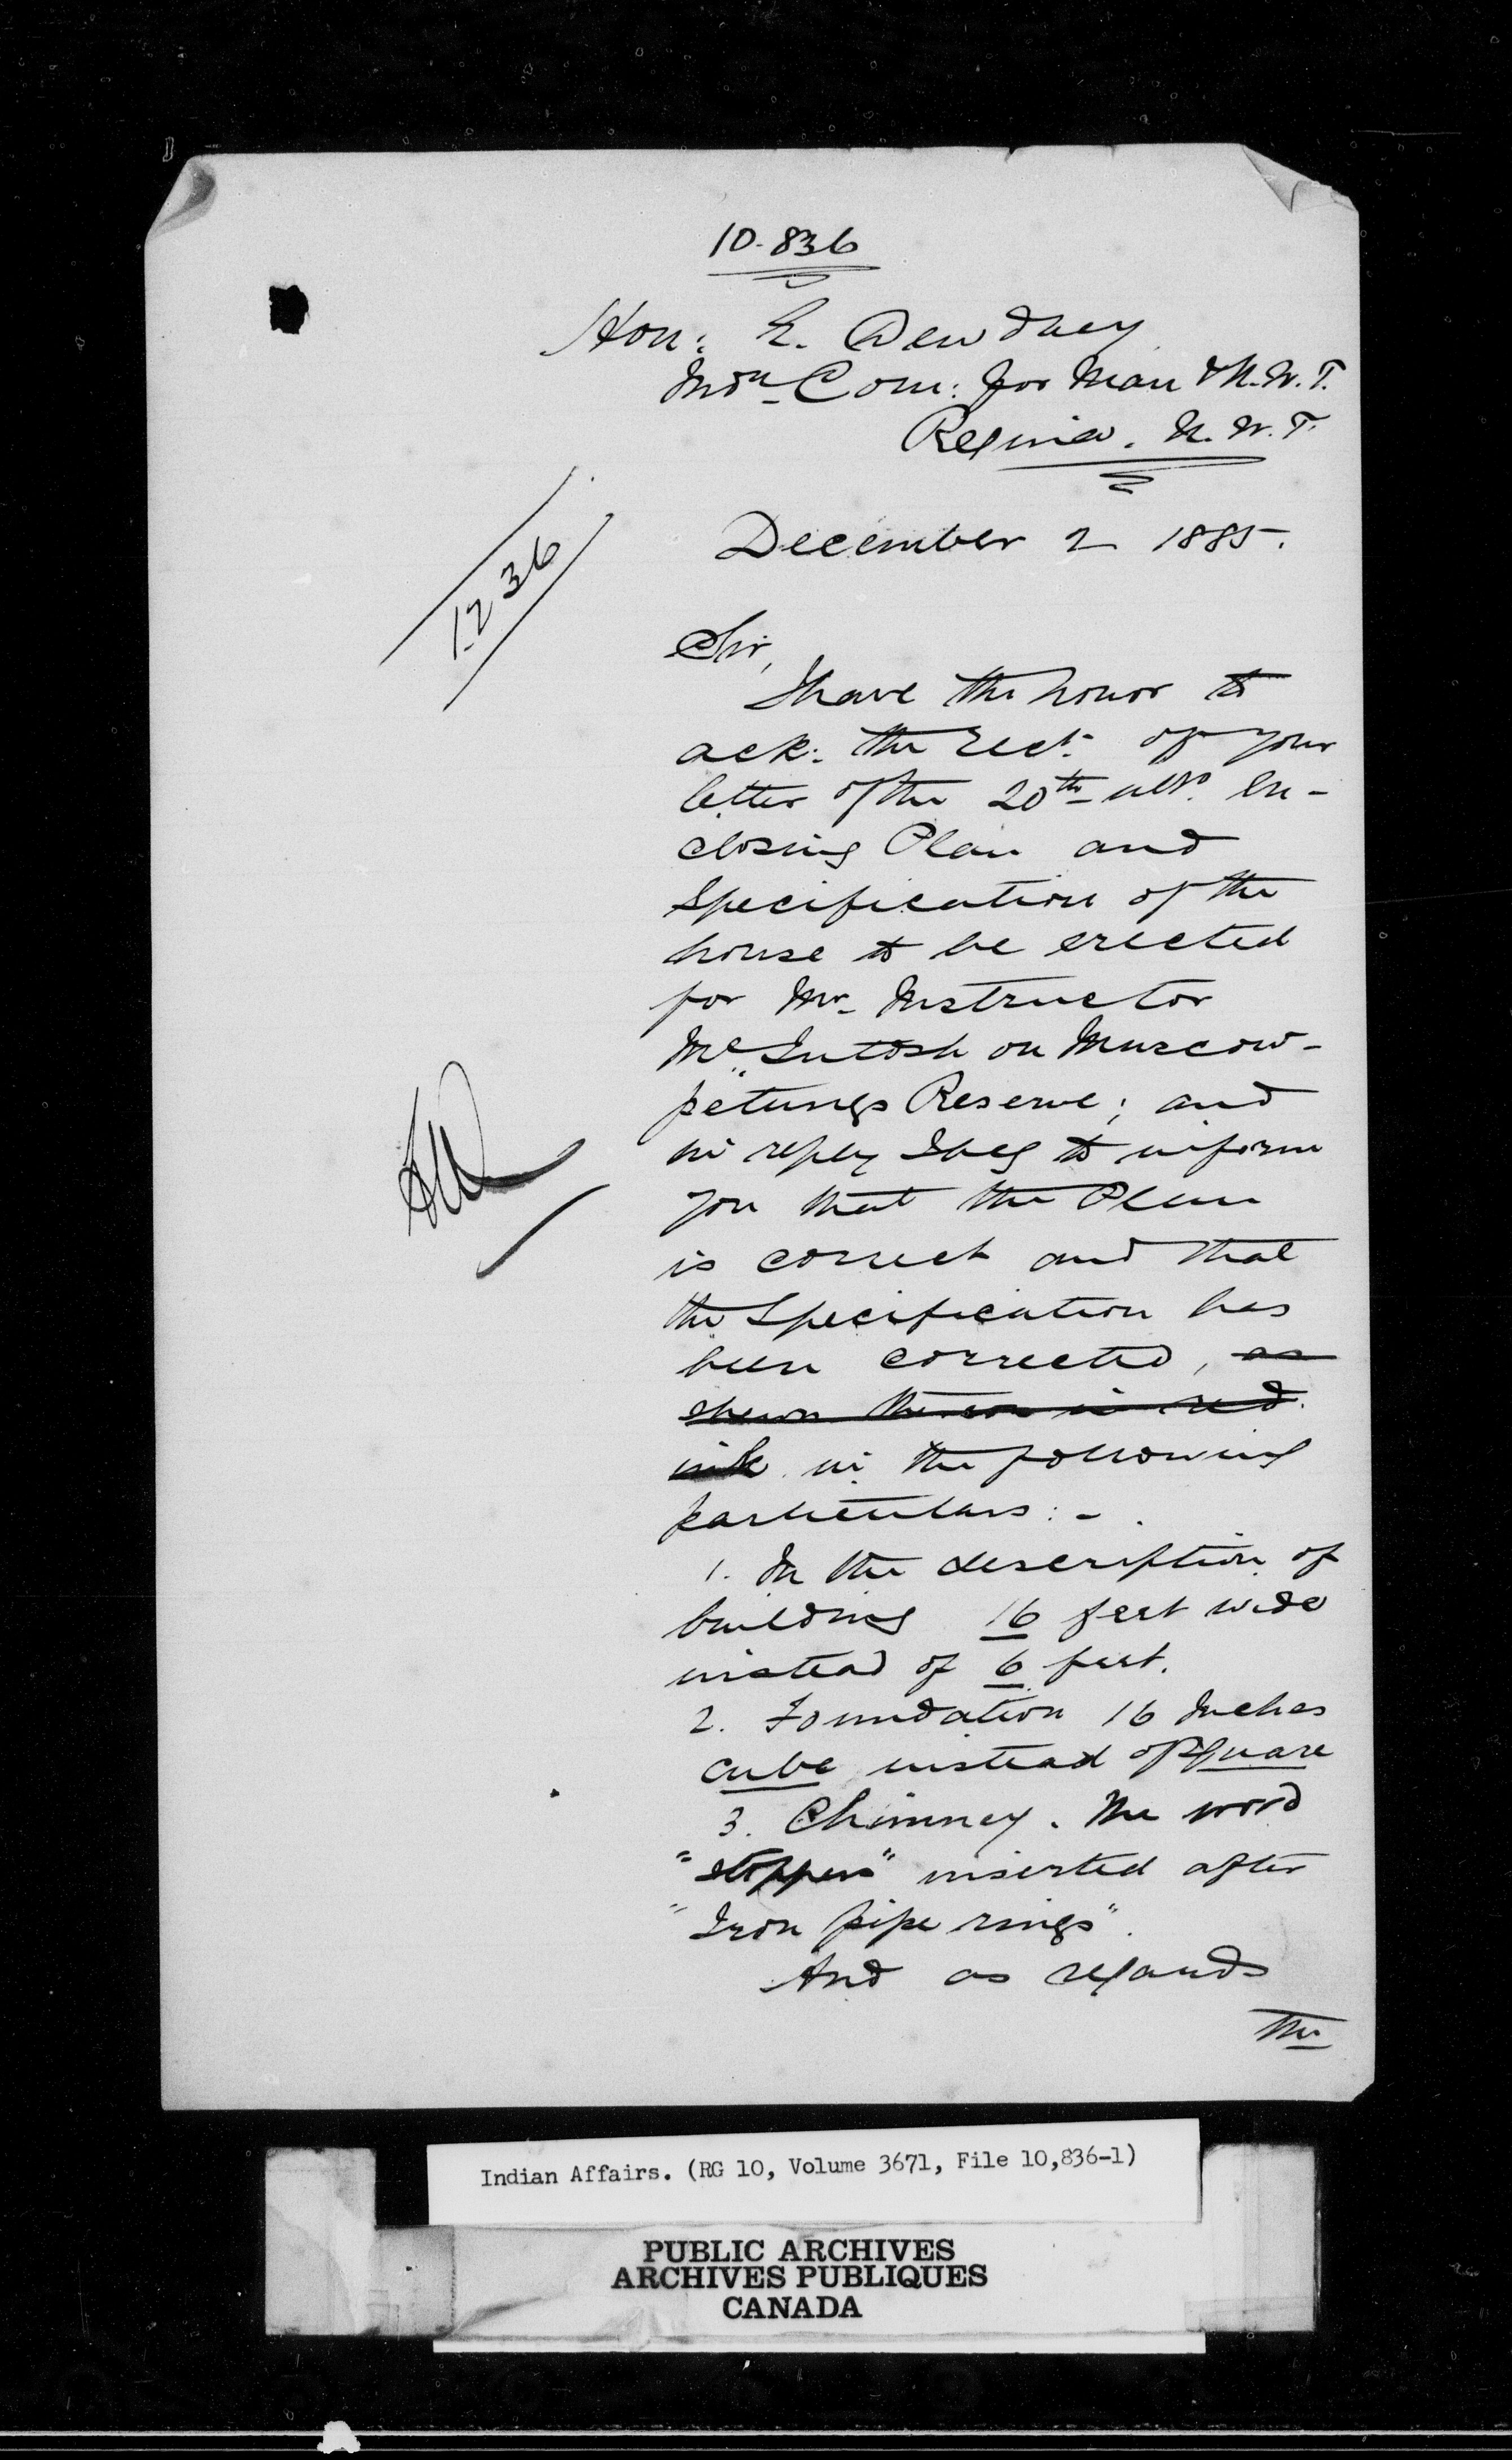 10.836
Hon: E. Dewdney
Indn Com: for Man & N.W.T.
Regina. N.W.T.
1236
December 2 1885.
Sir,
I have the honor to
ack: the rect. of your
letter of the 20th ulto. en-
closing Plan and
Specification of the
house to be erected
for Mr. Instructor
McIntosh on Muscow-
petungs Reserve; and
in reply I beg to inform
you that the Plan
is correct and that
the Specification has
been corrected, as
shewn thereon in red
ink in the following
particulars:-
1. In the description of
building 16 feet wide
instead of 6 feet.
2. Foundation 16 Inches
cube instead of square
3. Chimney. The word
"stoppers" inserted after
"Iron pipe rings".
And as regards
the
Indian Affairs. (RG 10, Volume 3671, File 10,836-1)
PUBLIC ARCHIVES
ARCHIVES PUBLIQUES
CANADA